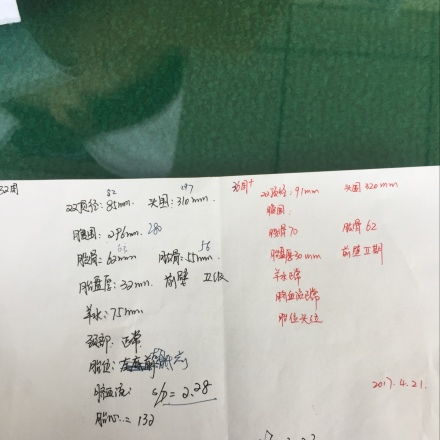 32周
双顶径: 85mm. 头围: 310mm.
腹围: 296mm. 280
股骨: 62mm 肱骨: 55mm. 56
胎盘厚: 32mm. 前壁 II级
羊水: 75mm
颈部: 正常
胎位:
脐血流: S/D = 2.28
胎心: 132
36周+
双顶径: 91mm 头围 320mm
腹围:
股骨 70 肱骨 62
胎盘厚 30mm 前壁 II期
羊水正常
脐血流正常
胎位头位
2017.4.21.